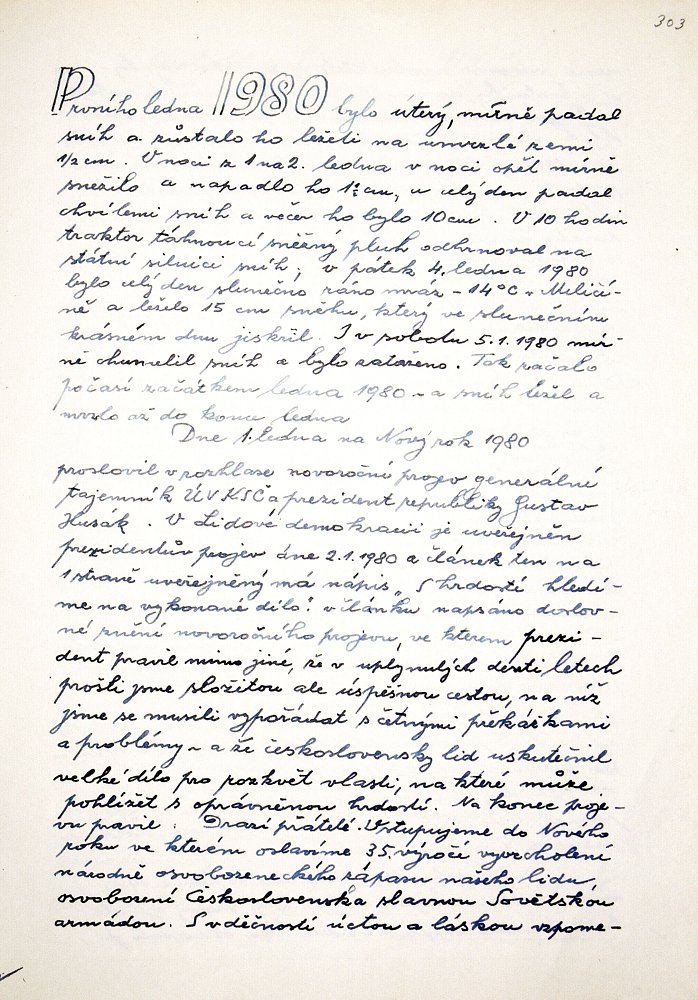 303
Prvního ledna 1980 bylo úterý, mírně padal
sníh a zůstalo ho ležeti na umrzlé zemi
1/2 cm. V noci z 1 na 2. ledna v noci opět mírně
sněžilo a napadlo ho 1 cm, a celý den padal
chvílemi sníh a večer ho bylo 10 cm. V 10 hodin
traktor táhnoucí sněžný pluh odhrnoval na
státní silnici sníh; v pátek 4. ledna 1980
bylo celý den slunečno ráno mráz -14°C v Miličí-
ně a leželo 15 cm sněhu, který ve slunečním
krásném dnu jiskřil. I v sobotu 5.1.1980 mír-
ně chumelil sníh a bylo zataženo. Tak začalo
počasí začátkem ledna 1980 - a sníh ležel a
mrzlo až do konce ledna
Dne 1. ledna na Nový rok 1980
proslovil v rozhlase novoroční projev generální
tajemník ÚV KSČ a prezident republiky Gustav
Husák. V Lidové demokracii je uveřejněn
prezidentův projev dne 2.1.1980 a článek ten na
1 straně uveřejněný má nápis „S hrdostí hledí-
me na vykonané dílo". v článku napsáno doslov-
né znění novoročního projevu, ve kterém prezi-
dent pravil mimo jiné, že v uplynulých deseti letech
prošli jsme složitou ale úspěšnou cestou, na níž
jsme se musili vypořádat s četnými překážkami
a problémy - a že československy lid uskutečnil
velké dílo pro rozkvět vlasti, na které může
pohlížet s oprávněnou hrdostí. Na konec proje-
vu pravil: Drazí přátelé. Vstupujeme do Nového
roku ve kterém oslavíme 35. výročí vyvrcholení
národně osvobozeneckého zápasu našeho lidu,
osvobození Československa slavnou Sovětskou
armádou. S vděčností úctou a láskou vzpome-